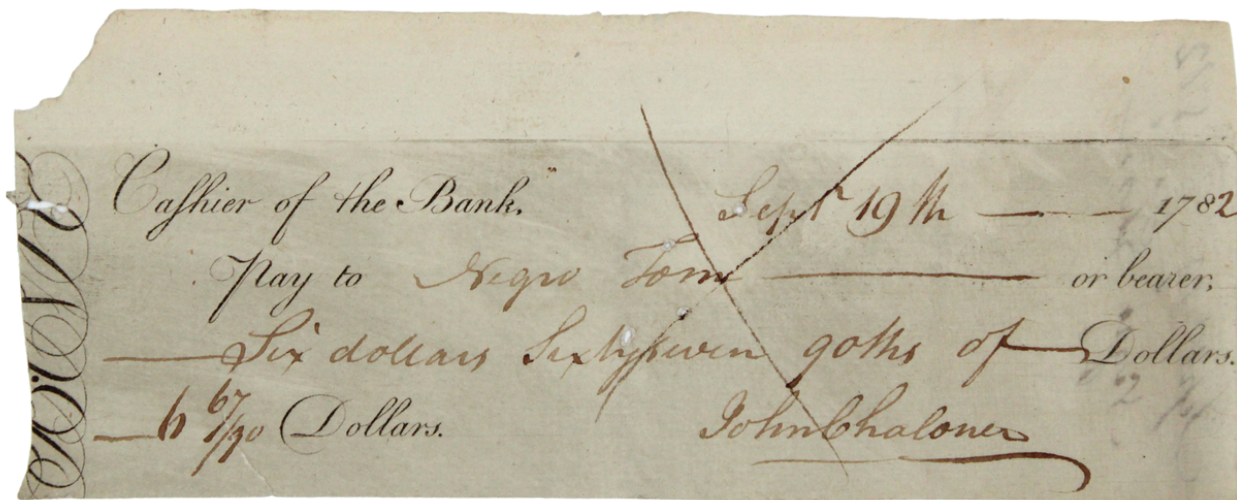 Cashier of the Bank. Sept 19th 1782
Pay to Negro Tom or bearer,
Six dollars Sixtyseven 90ths of Dollars.
6 67/90 Dollars. John Chaloner
BANK